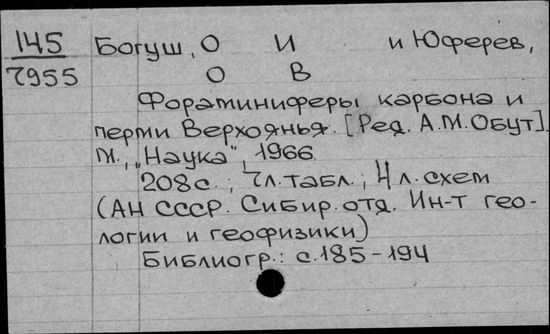 145 Богуш, О И и Юферев,
7955 О В
Фораминиферы карбона и
перми Верхоянья. [Ред. А.М.Обут].
М., „Наука", 1966
208с.; 7л.табл.; 4л.схем
(АН СССР. Сибир.отд. Ин-т гео-
логии и геофизики)
Библиогр.: с.185-194